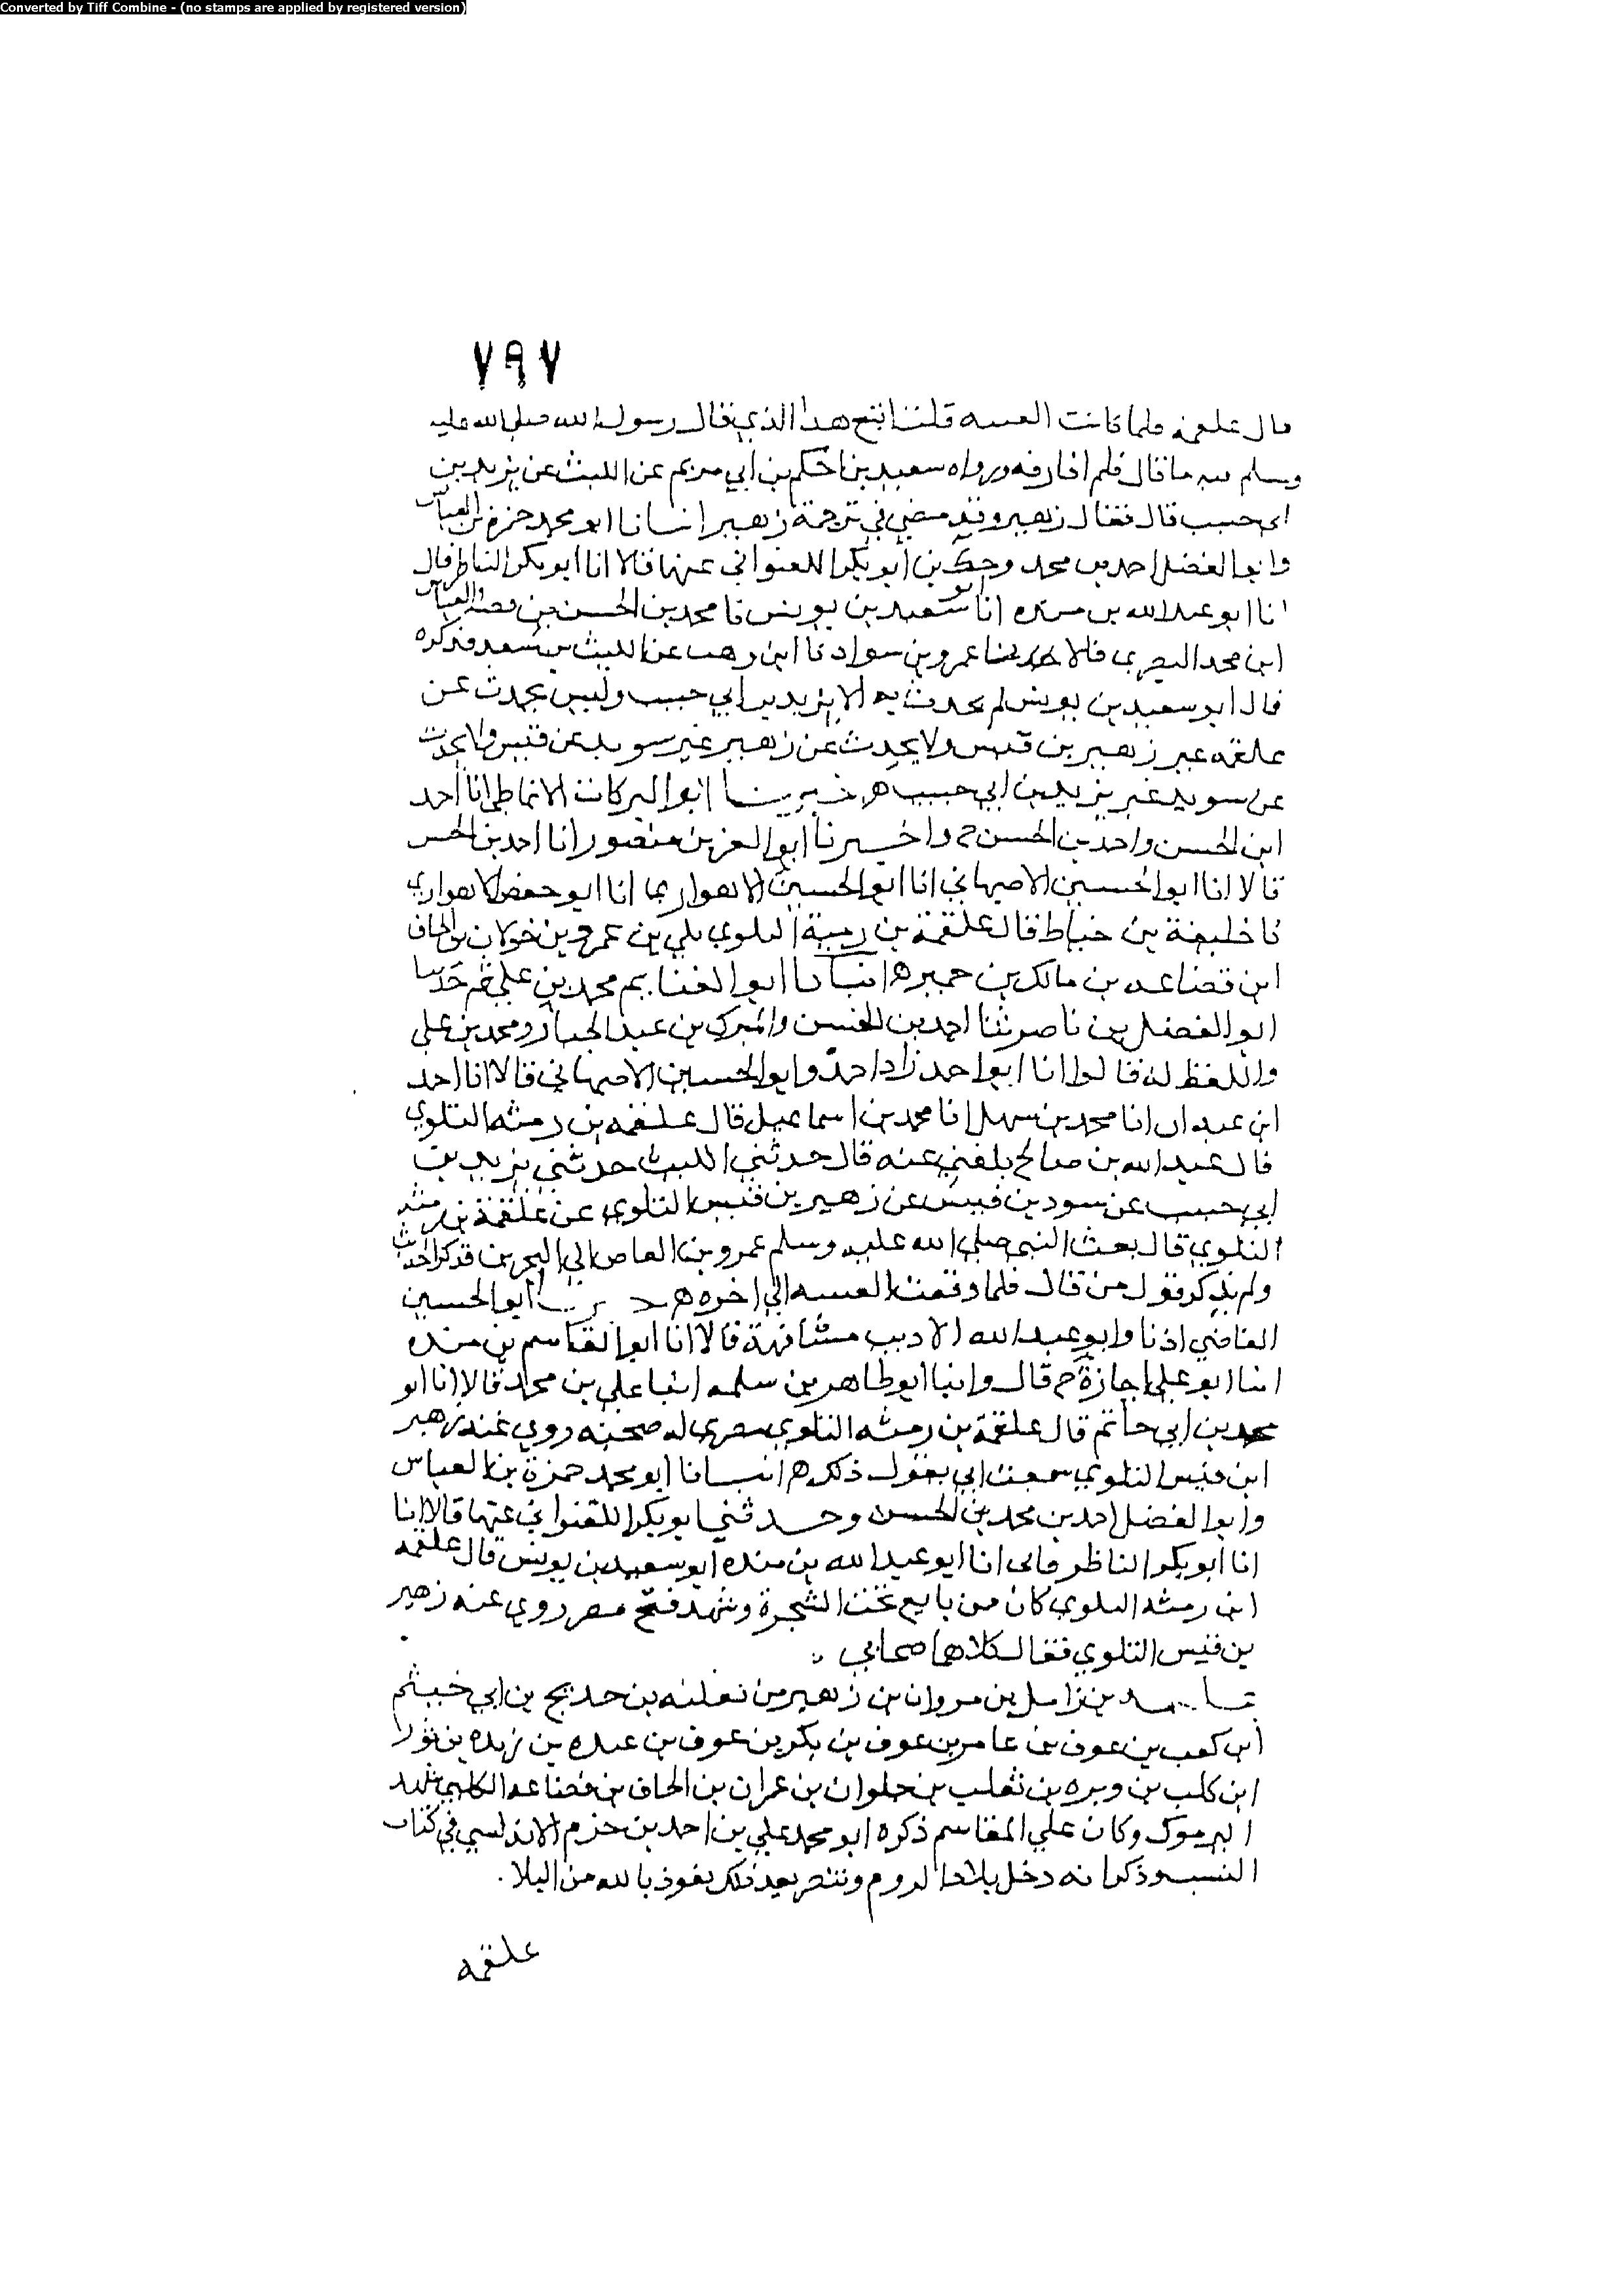 Converted by Tiff Combine - (no stamps are applied by registered version)
٧٩٧
قال علقمة فلما كانت الفتنه قلت اتبع هذا الذي قال رسول الله صلى الله عليه
وسلم فيه ما قال فلم افارقه ورواه سعيد بن الحكم بن ابي مريم عن الليث عن يزيد بن
ابي حبيب قال فقال زهير وقد مضى في ترجمة زهير انبانا ابو محمد حمزة بن العباس
وابو الفضل احمد بن محمد وحدثني ابو بكر اللفتواني عنهما قالا انا ابو بكر الناطرقاني
انا ابو عبد الله بن منده انا ابو سعيد بن يونس نا محمد بن الحسن بن والعباس
ابن محمد البصري قالا حدثنا عمرو بن سواد نا ابن وهب عن الليث بن سعد فذكره
قال ابو سعيد بن يونس لم يحدث به الا يزيد بن ابي حبيب وليس يحدث عن
علقمه غير زهير بن قيس ولا يحدث عن زهير غير سويد بن قيس ولا يحدث
عن سويد غير يزيد بن ابي حبيب ه اخبرنا ابو البركات الانماطي انا احمد
ابن الحسن واحمد بن الحسن ح واخبرنا ابو العز بن منصور انا احمد بن الحسن
قالا انا ابو الحسين الاصبهاني انا ابو الحسين الاهوازي انا ابو حفص الاهوازي
نا خليفة بن خياط قال علقمة بن رمثة البلوي بلي بن عمرو بن الحاف
ابن قضاعه بن مالك بن حمير ه انبانا ابو الغنايم محمد بن علي ثم حدثنا
ابو الفضل بن ناصر ثنا احمد بن الحسن والمبارك بن عبد الجبار ومحمد بن علي
واللفظ له قالوا انا ابو احمد زاد احمد وابو الحسين الاصبهاني قالا انا احمد
ابن عبدان انا محمد بن سهل انا محمد بن اسماعيل قال علقمه بن رمثه البلوي
قال عبد الله بن صالح بلغني عنه قال حدثني الليث حدثني يزيد بن
ابي حبيب عن سويد بن قيس عن زهير بن قيس البلوي عن علقمة بن رمثه
البلوي قال بعث النبي صلى الله عليه وسلم عمرو بن العاص الى البحرين فذكر الحديث
ولم يذكر قول من قال فلما وقعت الفتنه الى اخره ه ابو الحسين
القاضي اذنا وابو عبد الله الاديب مشافهة قالا انا ابو القاسم بن منده
انبا ابو علي اجازة ح قال وانبا ابو طاهر بن سلمه انبا علي بن محمد قالا انا ابو
محمد بن ابي حاتم قال علقمة بن رمثه البلوي مصري له صحبه روي عنه زهير
ابن قيس البلوي سمعت ابي يقول ذلك ه انبانا ابو محمد حمزة بن العباس
وابو الفضل احمد بن محمد بن الحسن وحدثني ابو بكر اللفتواني عنهما قالا انا
انا ابو بكر الناطرقاني انا ابو عبد الله بن منده ابو سعيد بن يونس قال علقمه
ابن رمثه البلوي كان من بايع تحت الشجرة وشهد فتح مصر روي عنه زهير
بن قيس البلوي فقال كلاهما صحابي
بن زامل بن مروان بن زهير من ثعلبه بن حديج بن ابي خيثم
ابن كعب بن عوف بن عامر بن عوف بن بكر بن عوف بن عبده بن زيده بن ثور
ابن كلب بن وبره بن تغلب بن حلوان بن عمران بن الحاف بن قضاعه الكلبي شهد
اليرموك وكان علي المقاسم ذكره ابو محمد علي بن احمد بن حزم الاندلسي في كتاب
النسب وذكر انه دخل بلاد الروم وتنصر بعد ذلك نعوذ بالله من البلا.
علقمه